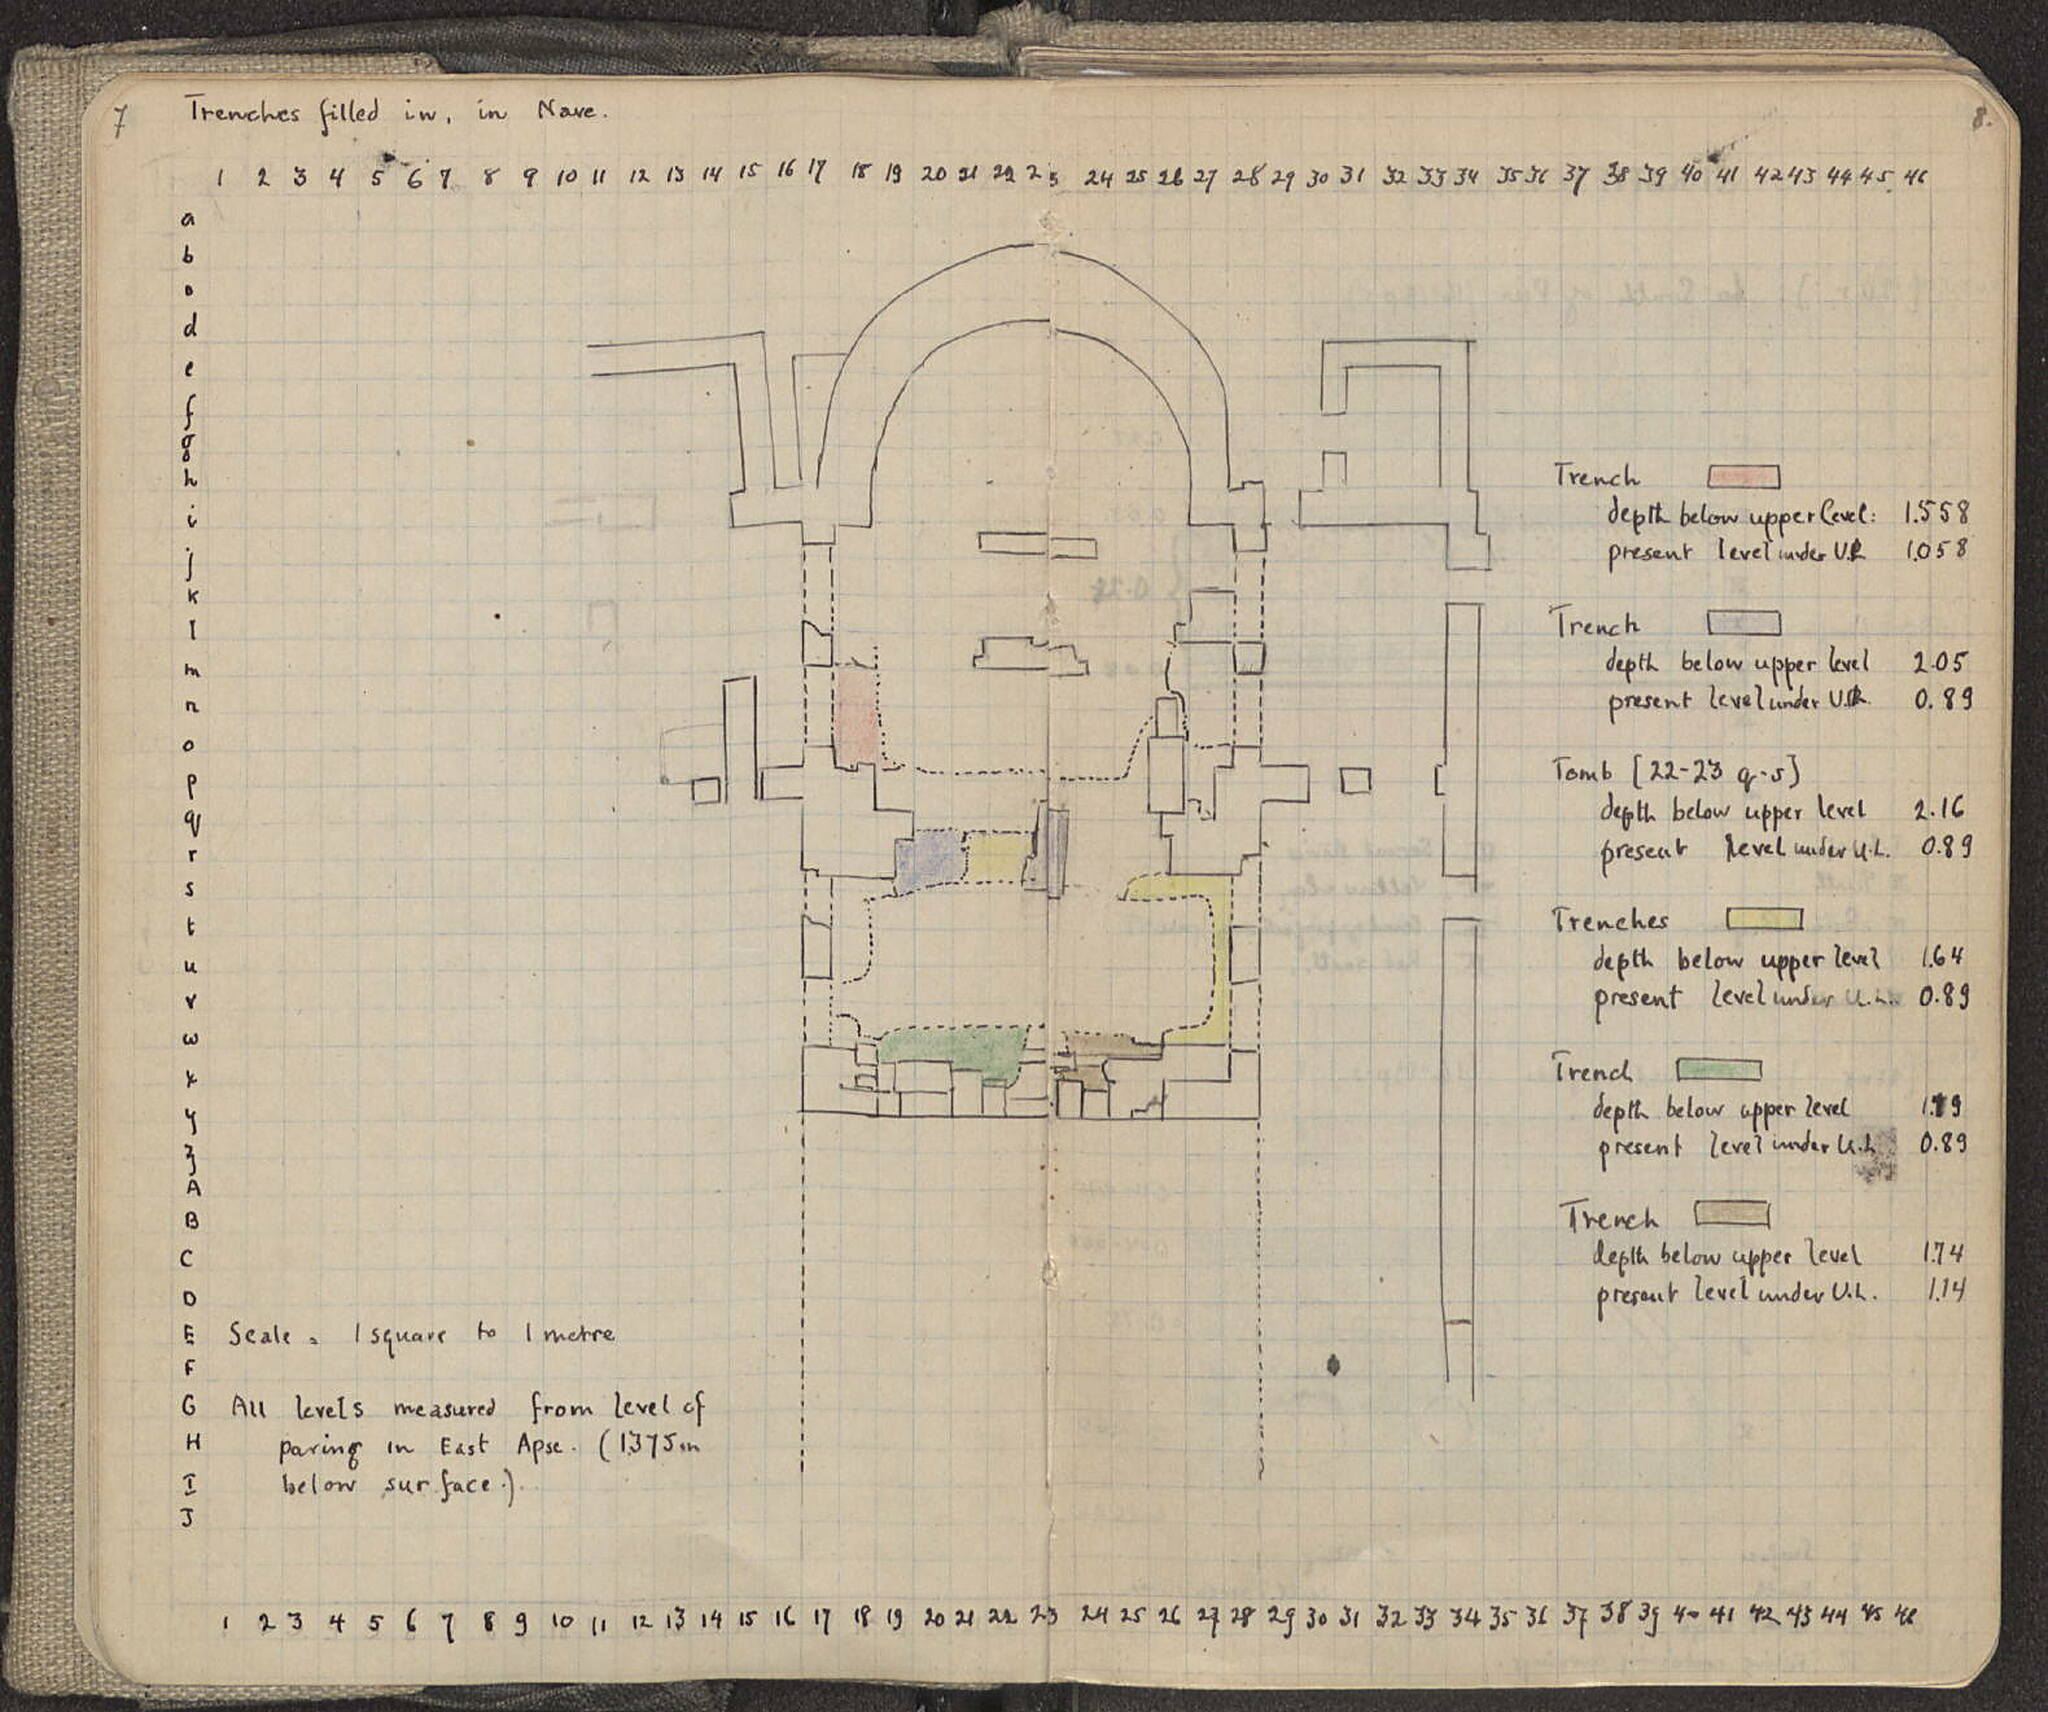 7
Trenches filled in, in Nave.
8.
1 2 3 4 5 6 7 8 9 10 11 12 13 14 15 16 17 18 19 20 21 22 23 24 25 26 27 28 29 30 31 32 33 34 35 36 37 38 39 40 41 42 43 44 45 46
a
b
d
e
f
g
h
i
j
k
l
m
n
o
p
q
r
s
t
u
v
w
x
y
z
A
B
C
D
E
F
G
H
I
J
Trench
depth below upper level: 1.558
present level under U.L. 1.058
Trench
depth below upper level 2.05
present level under U.L. 0.89
Tomb [22-23 q-s]
depth below upper level 2.16
present level under U.L. 0.89
Trenches
depth below upper level 1.64
present level under U.L. 0.89
Trench
depth below upper level
present level under U.L. 0.89
Trench
depth below upper level 1.74
present level under U.L. 1.14
Scale = 1 square to 1 metre
All levels measured from level of
paving in East Apse. (1.375m
below surface.)
1 2 3 4 5 6 7 8 9 10 11 12 13 14 15 16 17 18 19 20 21 22 23 24 25 26 27 28 29 30 31 32 33 34 35 36 37 38 39 40 41 42 43 44 45 46